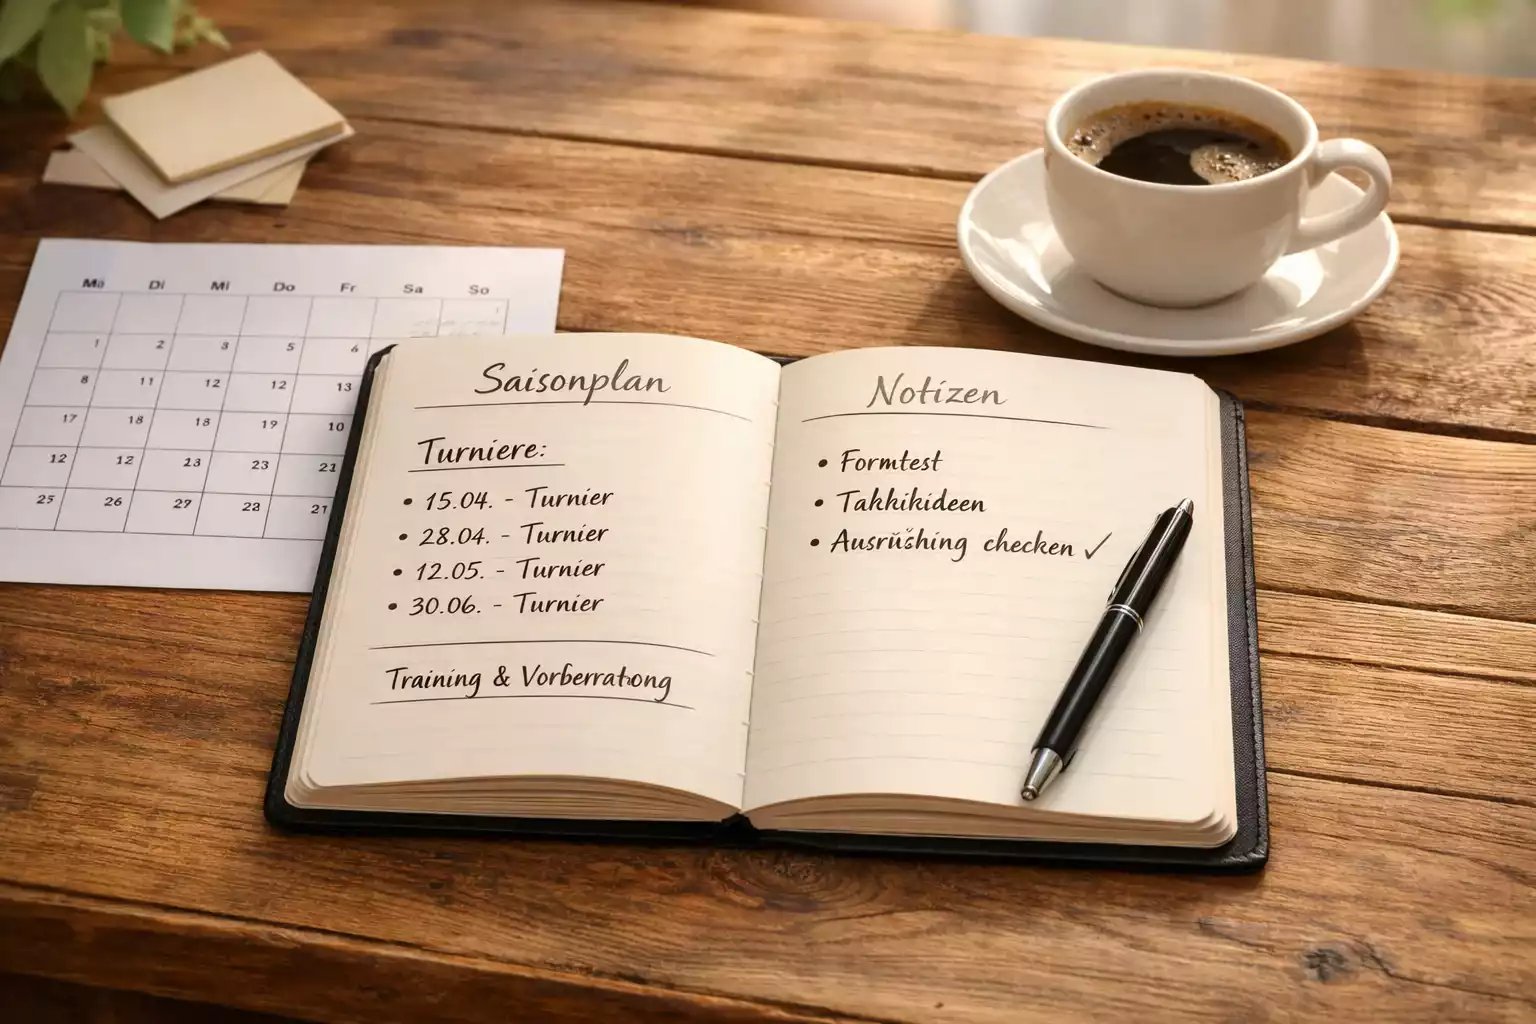 Mo Di Mi Do Fr Sa So
1
1 2 3 5 6
8 11 12 12 13
17 18 13 19 10
12 12 23 23 21
25 26 27 21
Saisonplan
Turniere:
• 15.04. - Turnier
• 28.04. - Turnier
• 12.05. - Turnier
• 30.06. - Turnier
Training & Vorberratong
Notizen
• Formtest
• Takhikideen
• checken ✓